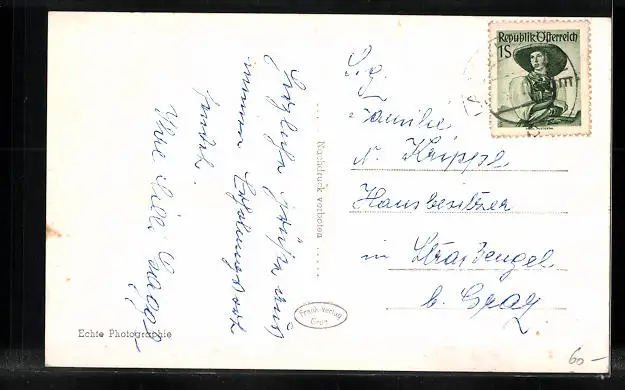 Herzliche Grüße aus
meinem Erholungsort
sendet
Ihre
Nachdruck verboten
Echte Photographie
Frank-Verlag
Graz
Republik Österreich
1S
S.g.
Familie
N. Krippl
Hausbesitzer
in Straßengel
b. Graz
60 –